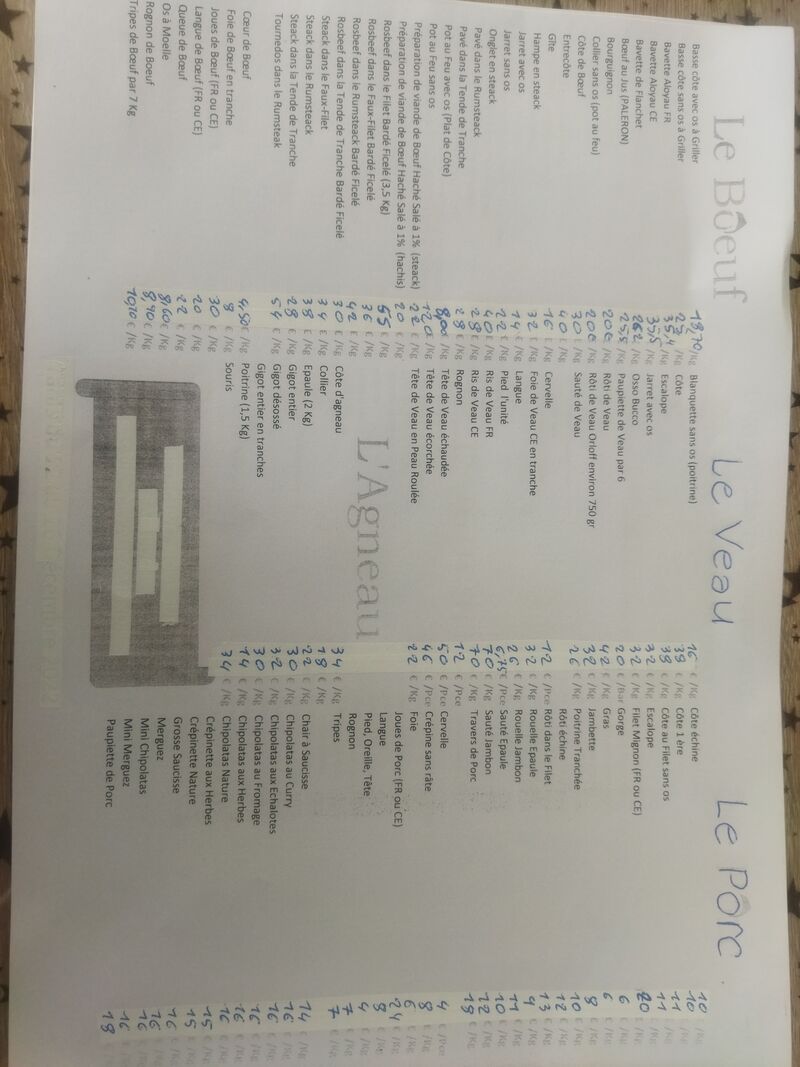 Le Bœuf
Basse côte avec os à Griller 18,70 € /Kg
Basse côte sans os à Griller € /Kg
Bavette Aloyau FR € /Kg
Bavette Aloyau CE € /Kg
Bavette de Flanchet € /Kg
Bœuf au Jus (PALERON) € /Kg
Bourguignon € /Kg
Collier sans os (pot au feu) € /Kg
Côte de Bœuf 30 € /Kg
Entrecôte 40 € /Kg
Gîte 16 € /Kg
Hampe en steack 32 € /Kg
Jarret avec os 14 € /Kg
Jarret sans os 22 € /Kg
Onglet en steack 40 € /Kg
Pavé dans le Rumsteack 28 € /Kg
Pavé dans la Tende de Tranche 28 € /Kg
Pot au Feu avec os (Plat de Côte) € /Kg
Pot au Feu sans os € /Kg
Préparation de viande de Bœuf Haché Salé à 1% (steack) 22 € /Kg
Préparation de viande de Bœuf Haché Salé à 1% (hachis) 20 € /Kg
Rosbeef dans le Filet Bardé Ficelé (3,5 Kg) 55 € /Kg
Rosbeef dans le Faux-Filet Bardé Ficelé 36 € /Kg
Rosbeef dans le Rumsteack Bardé Ficelé 42 € /Kg
Rosbeef dans la Tende de Tranche Bardé Ficelé 30 € /Kg
Steack dans le Faux-Filet 34 € /Kg
Steack dans le Rumsteack 38 € /Kg
Steack dans la Tende de Tranche 28 € /Kg
Tournedos dans le Rumsteak 54 € /Kg
Cœur de Bœuf 4,50 € /Kg
Foie de Bœuf en tranche 8 € /Kg
Joues de Bœuf (FR ou CE) 30 € /Kg
Langue de Bœuf (FR ou CE) 20 € /Kg
Queue de Bœuf 22 € /Kg
Os à Moelle 8,60 € /Kg
Rognon de Boeuf 8,90 € /Kg
Tripes de Bœuf par 7 Kg 10,10 € /Kg
Le Veau
Blanquette sans os (poitrine) 16 € /Kg
Côte 39 € /Kg
Escalope 38 € /Kg
Jarret avec os 32 € /Kg
Osso Bucco 32 € /Kg
Paupiette de Veau par 6 20 € /Bar
Rôti de Veau 42 € /Kg
Rôti de Veau Orloff environ 750 gr 32 € /Kg
Sauté de Veau 26 € /Kg
Cervelle 12 € /Pce
Foie de Veau CE en tranche 32 € /Kg
Langue 26 € /Kg
Pied l'unité 6,75 € /Pce
Ris de Veau FR 70 € /Kg
Ris de Veau CE 70 € /Kg
Rognon 12 € /Pce
Tête de Veau échaudée 50 € /Pce
Tête de Veau écorchée 46 € /Pce
Tête de Veau en Peau Roulée 22 € /Kg
L'Agneau
Côte d'agneau 34 € /Kg
Collier 18 € /Kg
Epaule (2 Kg) 22 € /Kg
Gigot entier 30 € /Kg
Gigot désossé 32 € /Kg
Gigot entier en tranches 30 € /Kg
Poitrine (1,5 Kg) 14 € /Kg
Souris 34 € /Kg
Le Porc
Côte échine 10 € /Kg
Côte 1 ère 10 € /Kg
Côte au Filet sans os 11 € /Kg
Escalope 11 € /Kg
Filet Mignon (FR ou CE) 20 € /Kg
Gorge 6 € /Kg
Gras 6 € /Kg
Jambette 8 € /Kg
Poitrine Tranchée 10 € /Kg
Rôti échine 12 € /Kg
Rôti dans le Filet 13 € /Kg
Rouelle Epaule 9 € /Kg
Rouelle Jambon 11 € /Kg
Sauté Epaule 10 € /Kg
Sauté Jambon 12 € /Kg
Travers de Porc 18 € /Kg
Cervelle 4 € /Pce
Crépine sans râte 8 € /Kg
Foie 6 € /Kg
Joues de Porc (FR ou CE) 24 € /Kg
Langue 8 € /Kg
Pied, Oreille, Tête 4 € /Kg
Rognon 7 € /Kg
Tripes 7 € /Kg
Chair à Saucisse 14 € /Kg
Chipolatas au Curry 16 € /Kg
Chipolatas aux Echalotes 16 € /Kg
Chipolatas au Fromage 16 € /Kg
Chipolatas aux Herbes 16 € /Kg
Chipolatas Nature 16 € /Kg
Crépinette aux Herbes 15 € /Kg
Crépinette Nature 15 € /Kg
Grosse Saucisse 16 € /Kg
Merguez 16 € /Kg
Mini Chipolatas 16 € /Kg
Mini Merguez 16 € /Kg
Paupiette de Porc 18 € /Kg